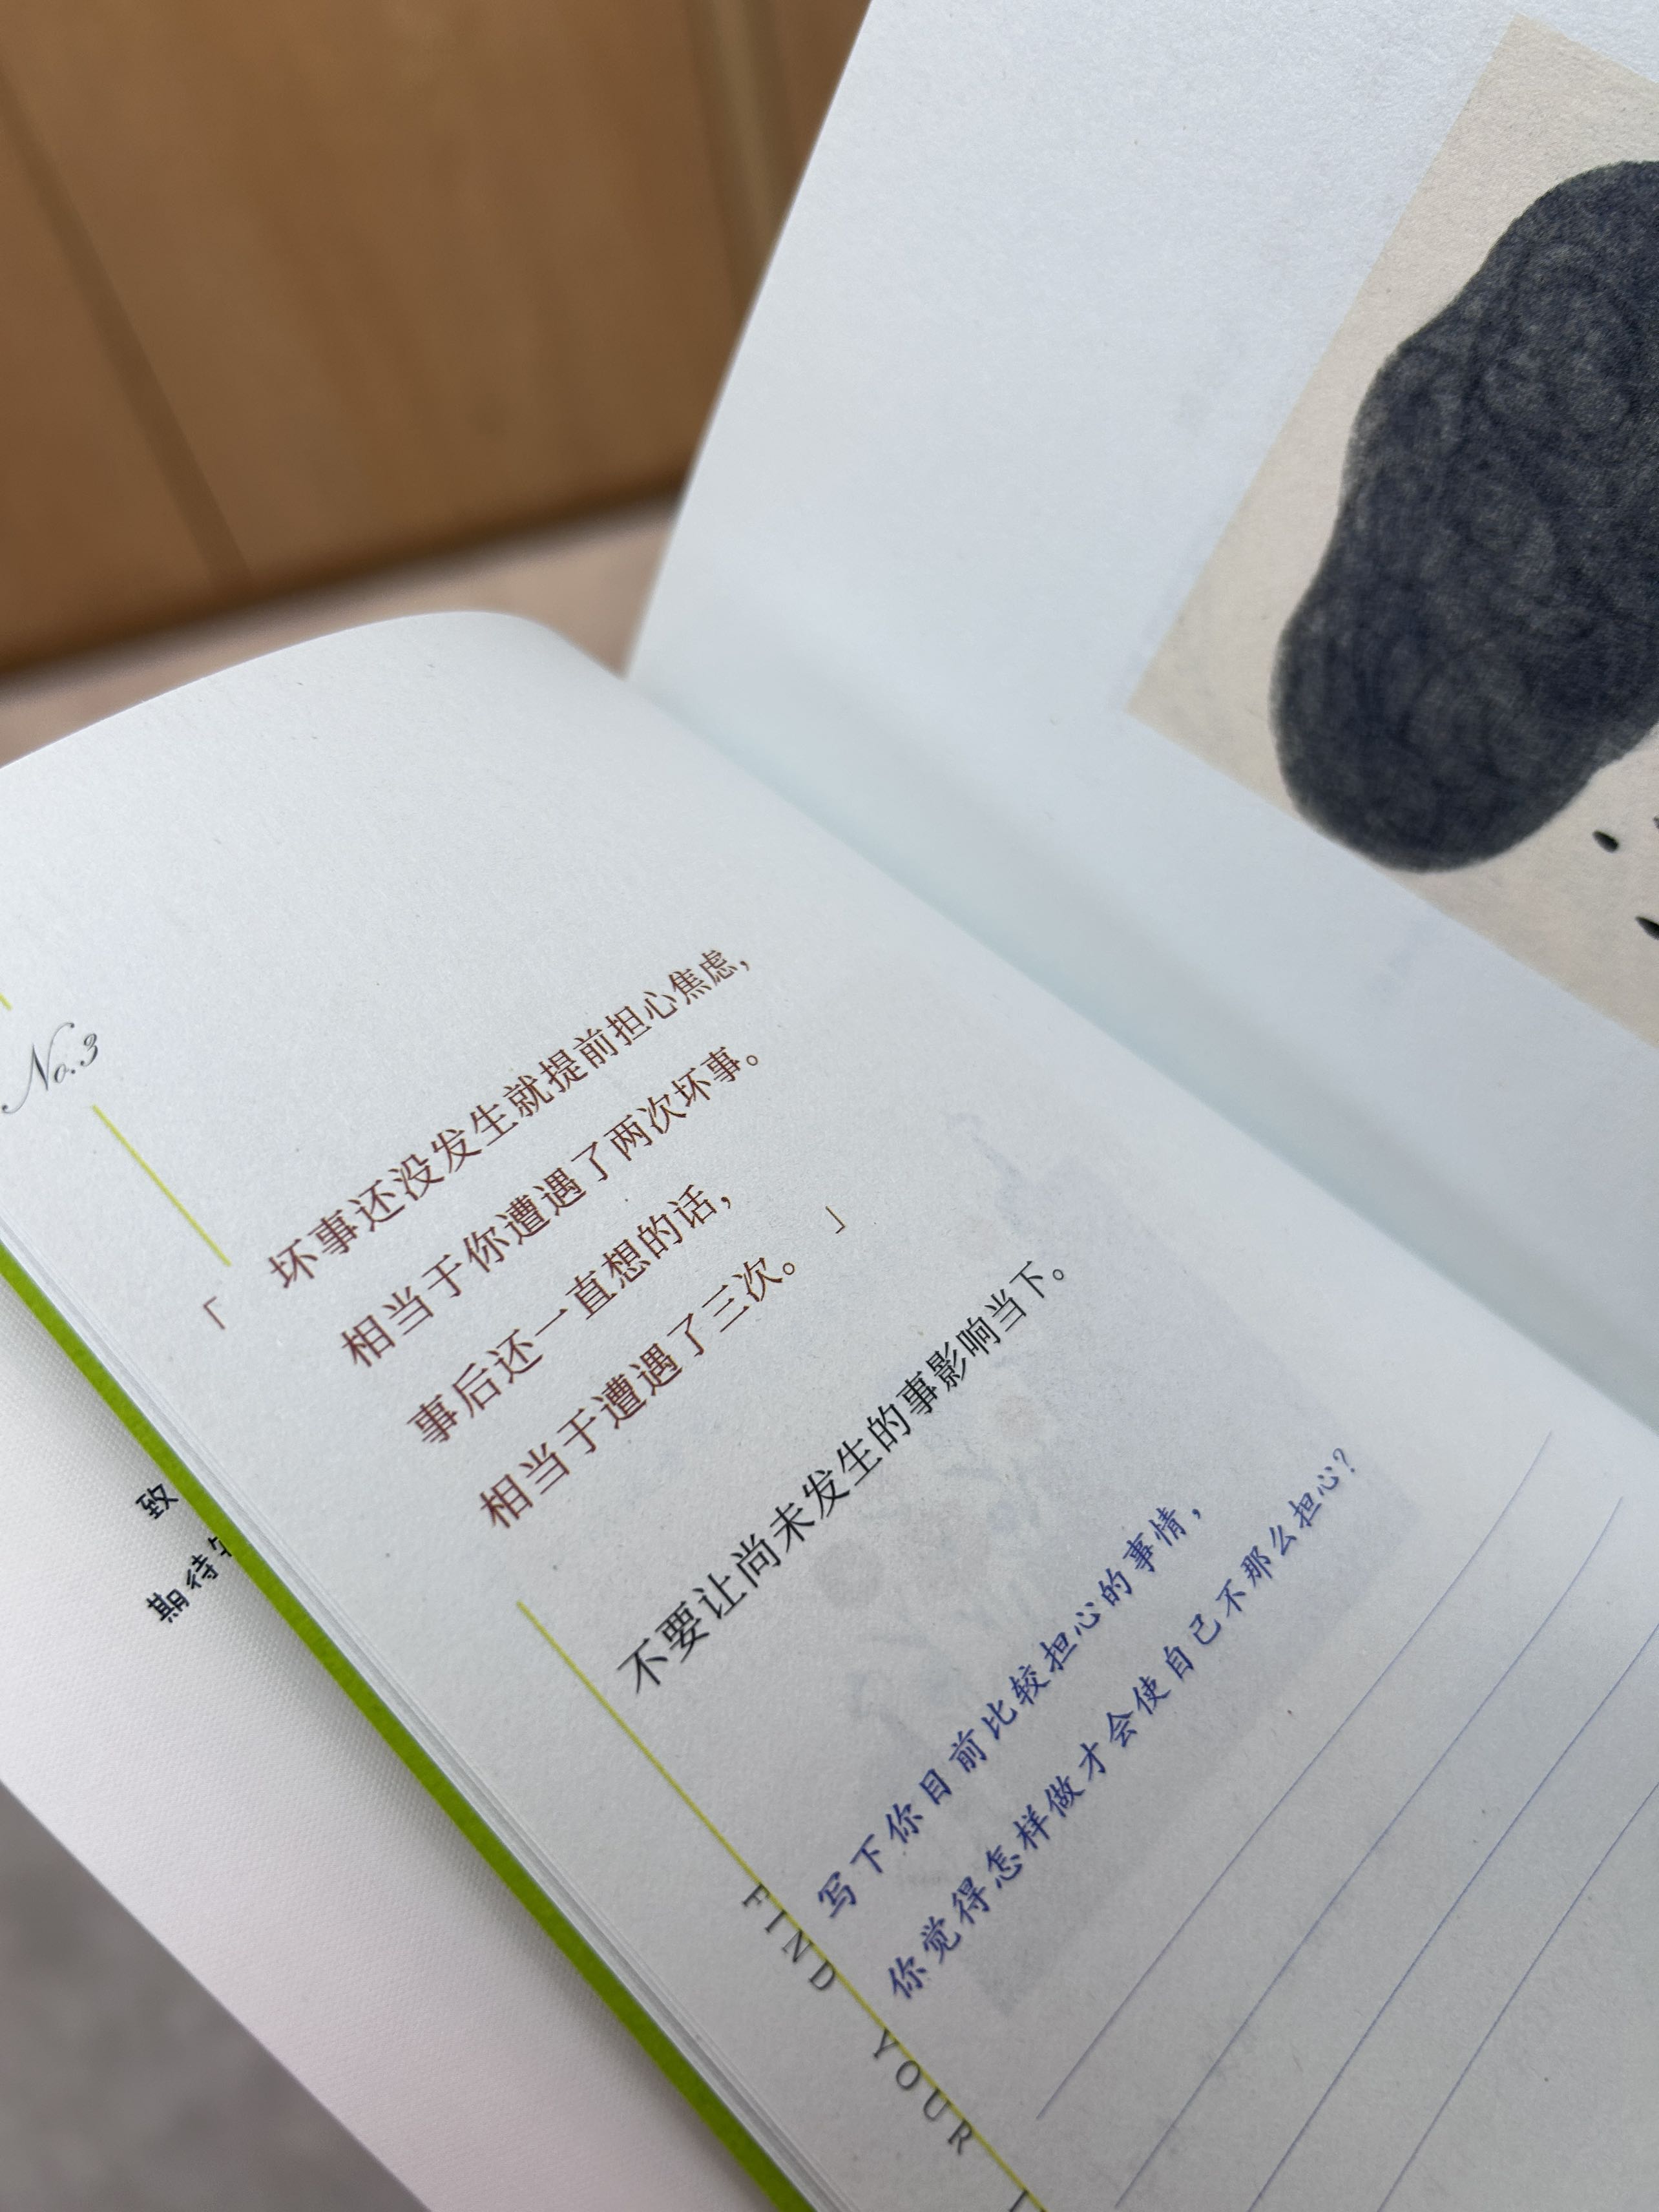 No.3
「 坏事还没发生就提前担心焦虑,
相当于你遭遇了两次坏事。
事后还一直想的话,
相当于遭遇了三次。 」
不要让尚未发生的事影响当下。
写下你目前比较担心的事情,
你觉得怎样做才会使自己不那么担心?
FIND YOUR
致
期待